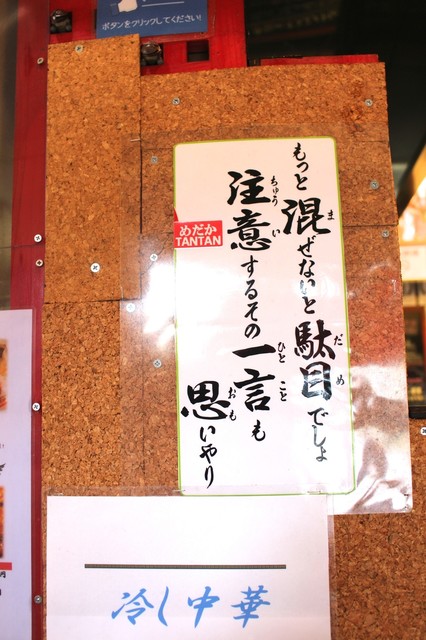 ボタンをクリックしてください!
もっと混ぜないと駄目でしょ
注意するその一言も
思いやり
めだか
TANTAN
冷し中華